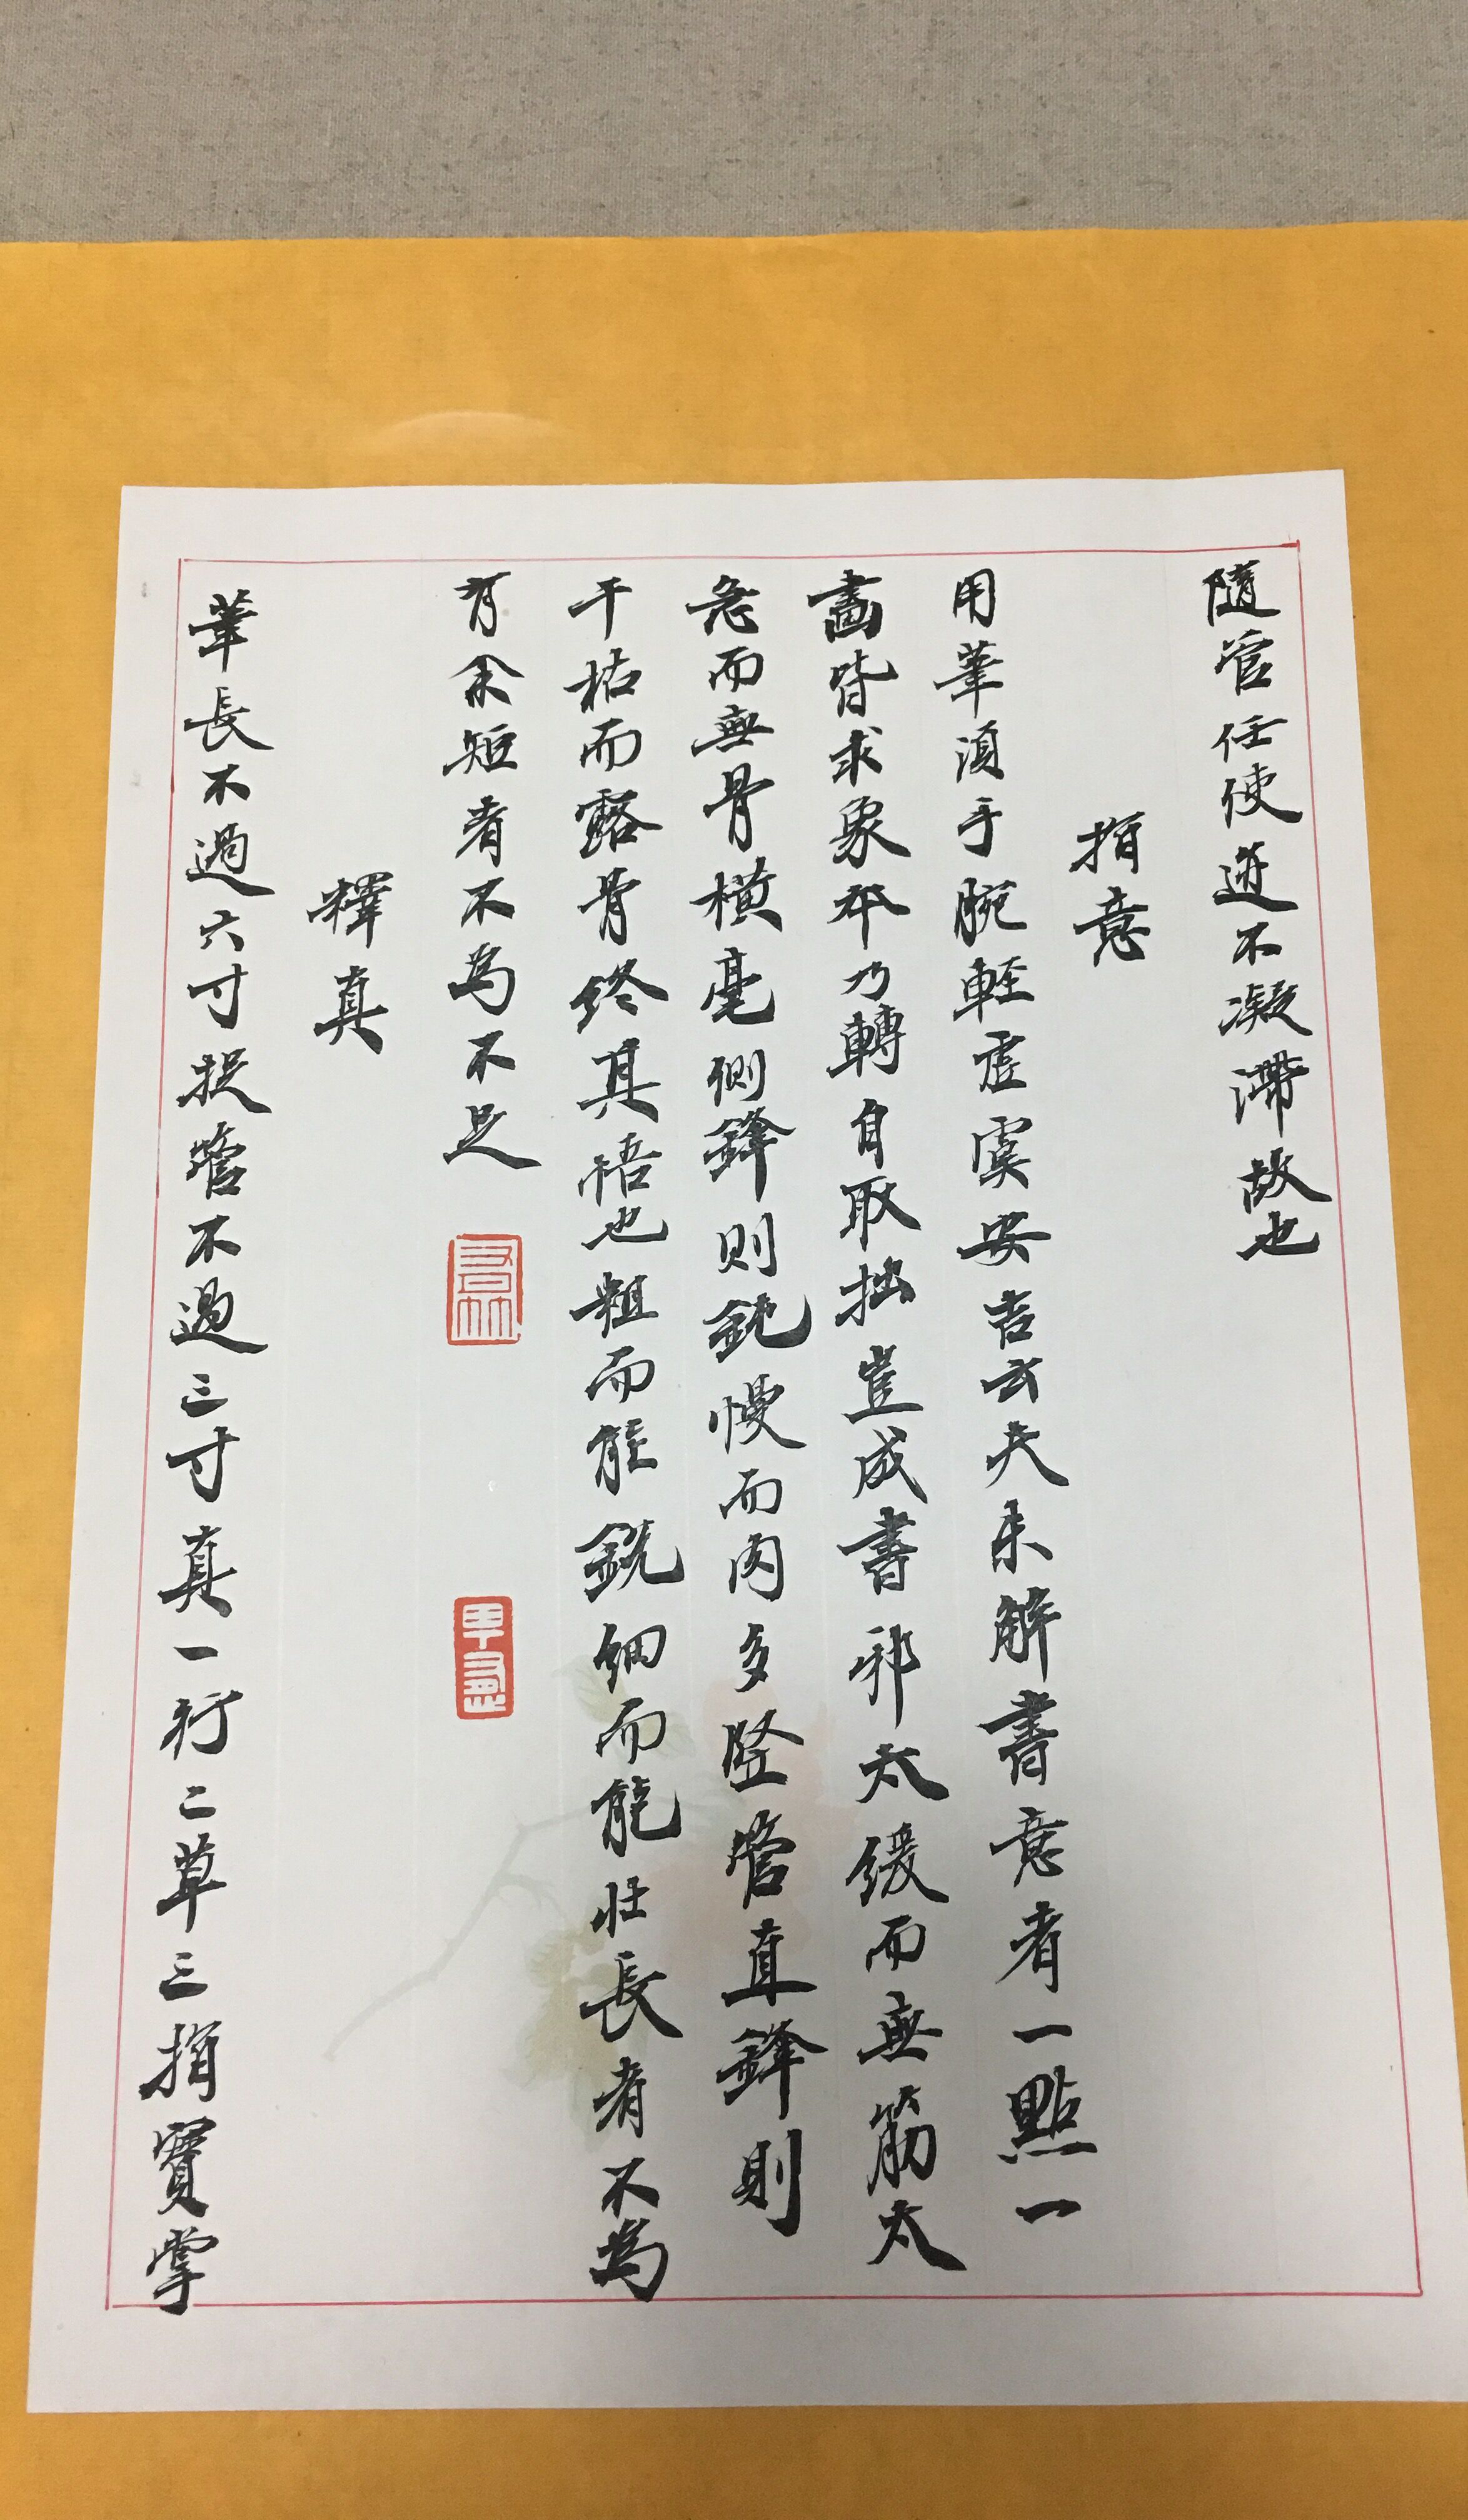 隨管任使迹不凝滯故也
指意
用筆須手腕輕虛虞安吉云夫未解書意者一點一
畫皆求象本乃轉自取拙豈成書邪太緩而無筋太
急而無骨橫毫側鋒則鈍慢而肉多竪管直鋒則
干枯而露骨終其悟也粗而能銳細而能壯長者不為
有余短者不為不足
釋真
筆長不過六寸捉管不過三寸真一行二草三指實掌